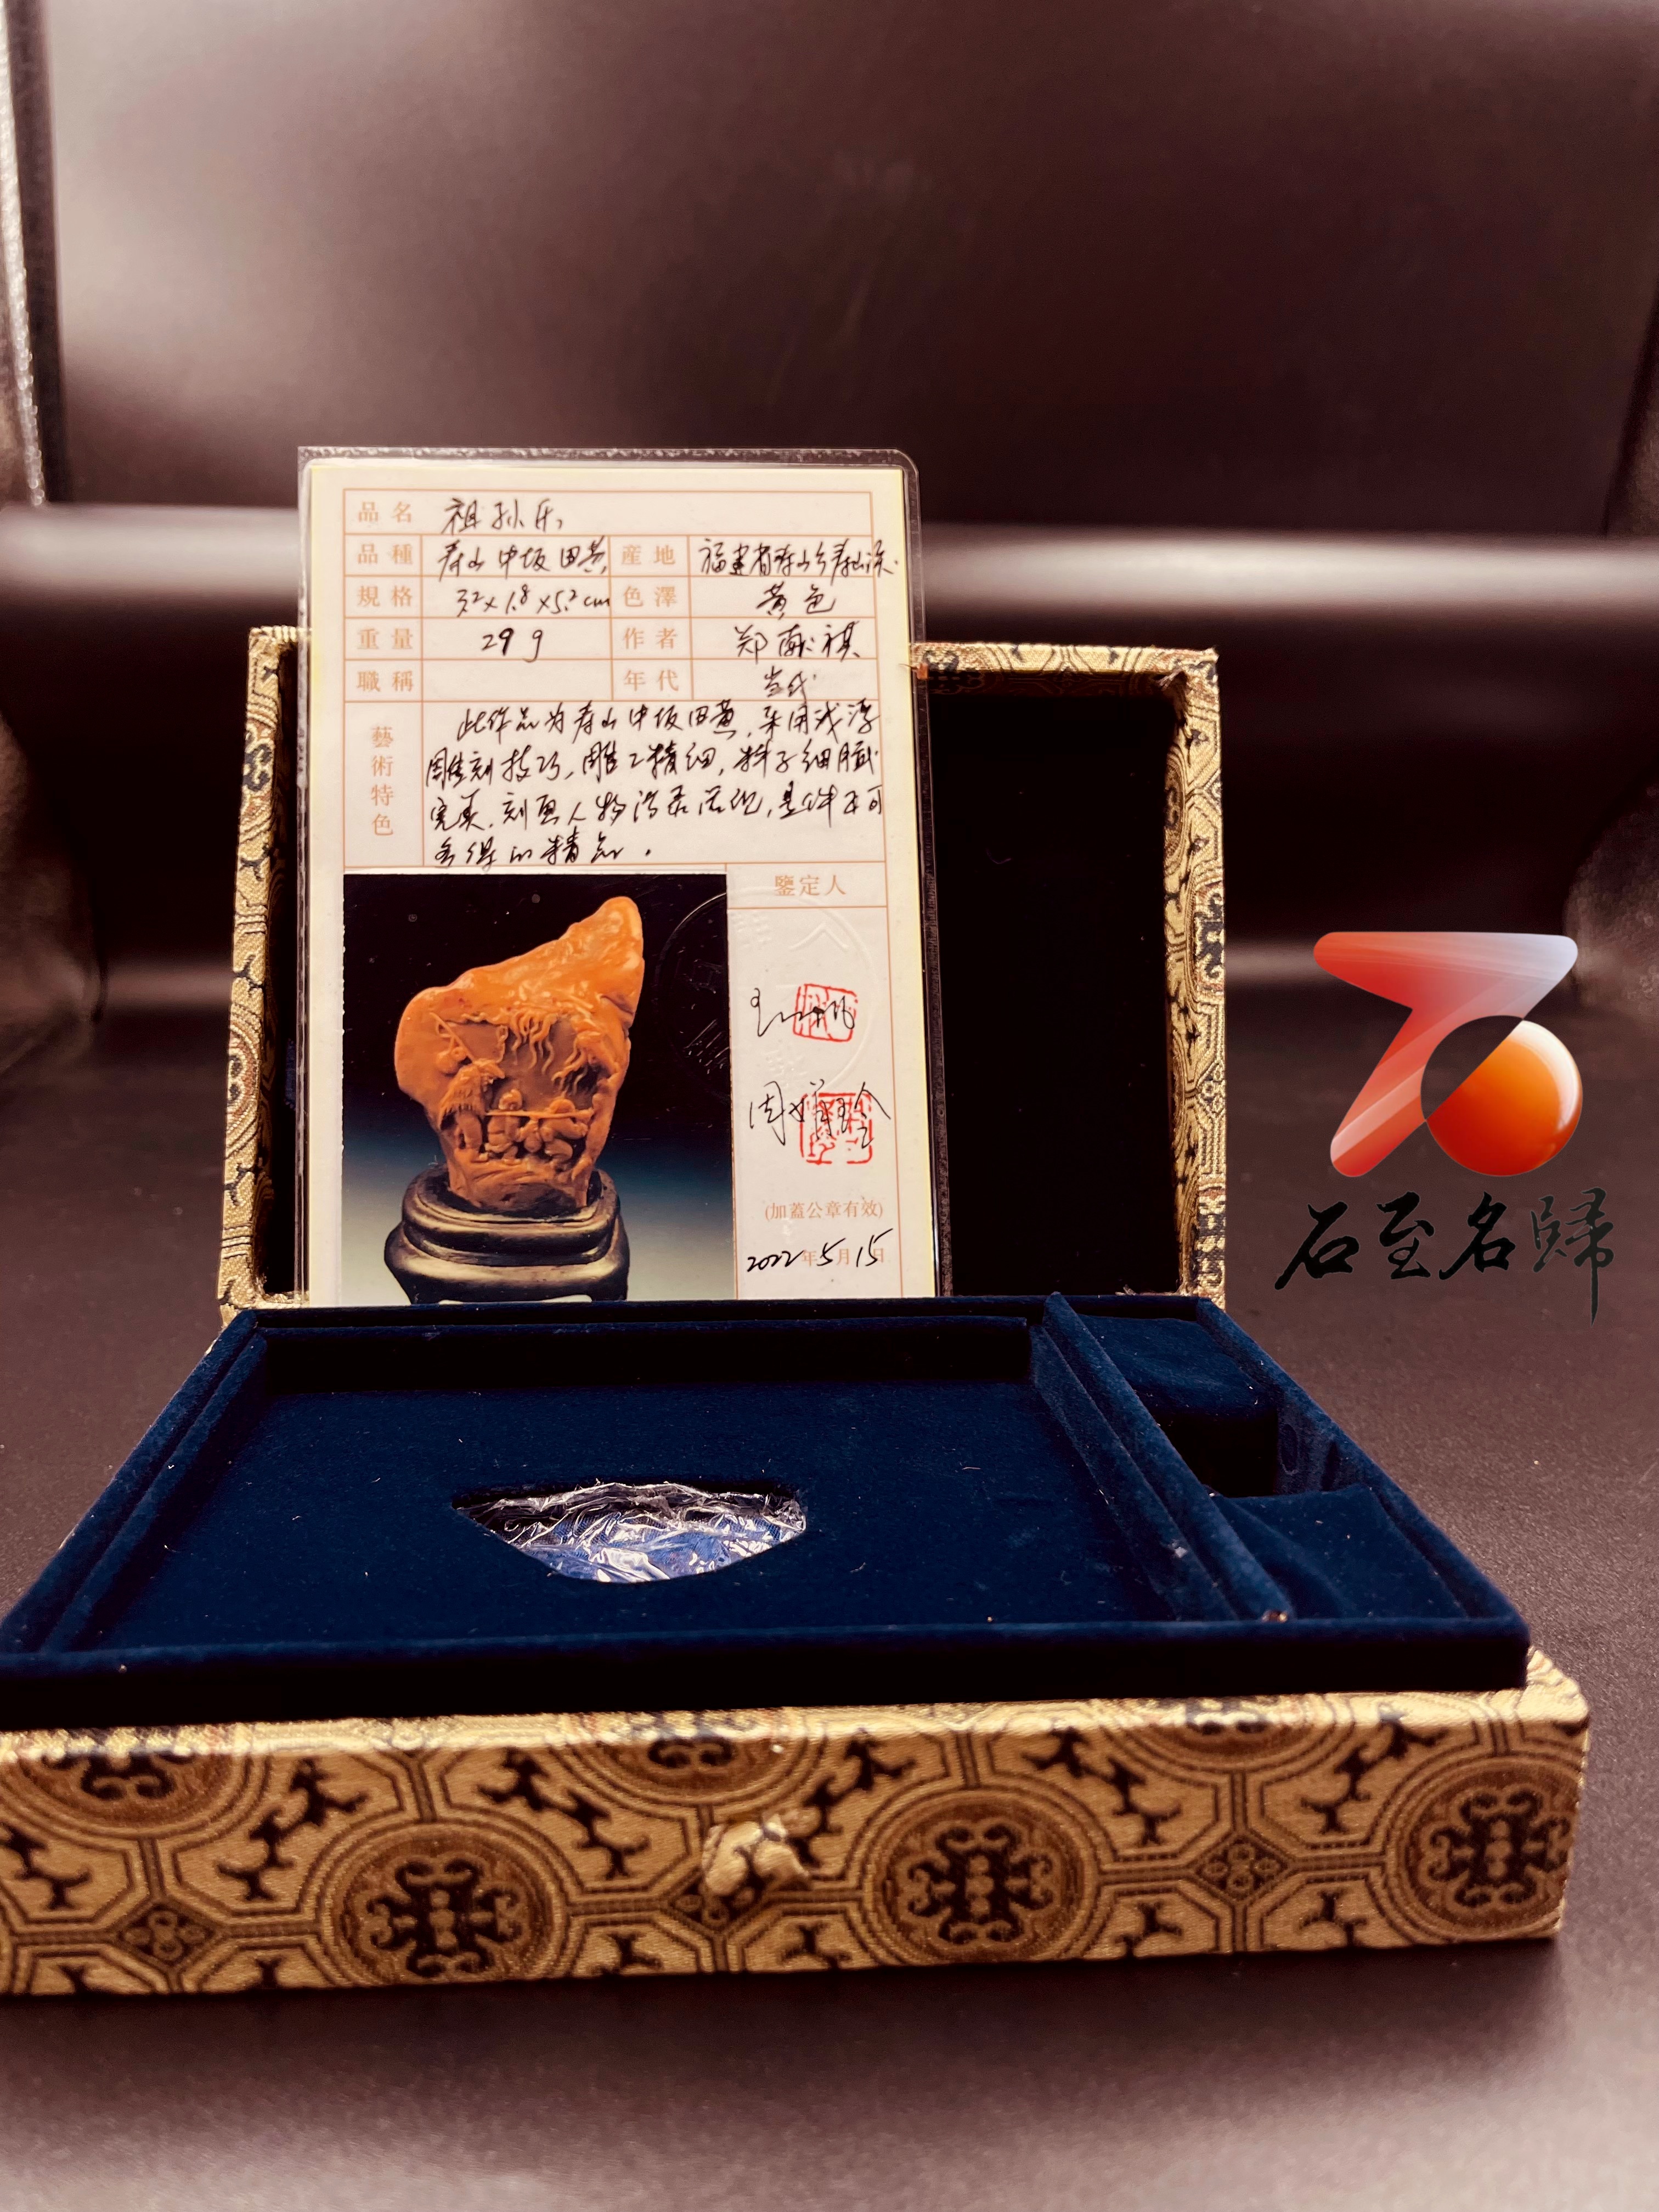 品名 祖孙乐
品種 寿山中坂田黄 産地 福建省寿山乡寿山溪
規格 3.2×1.8×5.2cm 色澤 黄色
重量 29g 作者 郑献祺
職稱 年代 当代
藝術特色 此作品为寿山中坂田黄，采用浅浮
雕刻技巧，雕工精细，料子细腻
完美，刻画人物活灵活现，是件不可
多得的精品。
鑒定人
周
(加蓋公章有效)
2022年5月15日
石至名歸